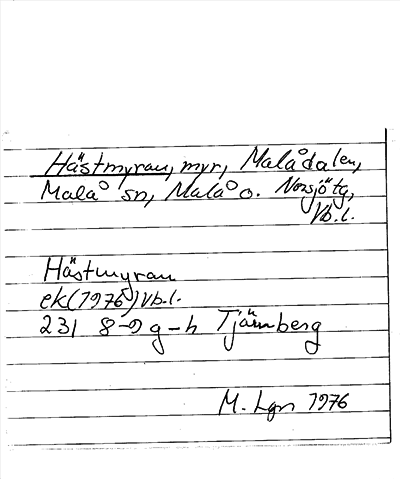 Hästmyran, myr, Malådalen,
Malå sn, Malå o. Norsjö tg,
Vb.l.
Hästmyran
ek (1976) Vb.l.
231 8-9 g-h Tjärnberg
M. Lgn 1976